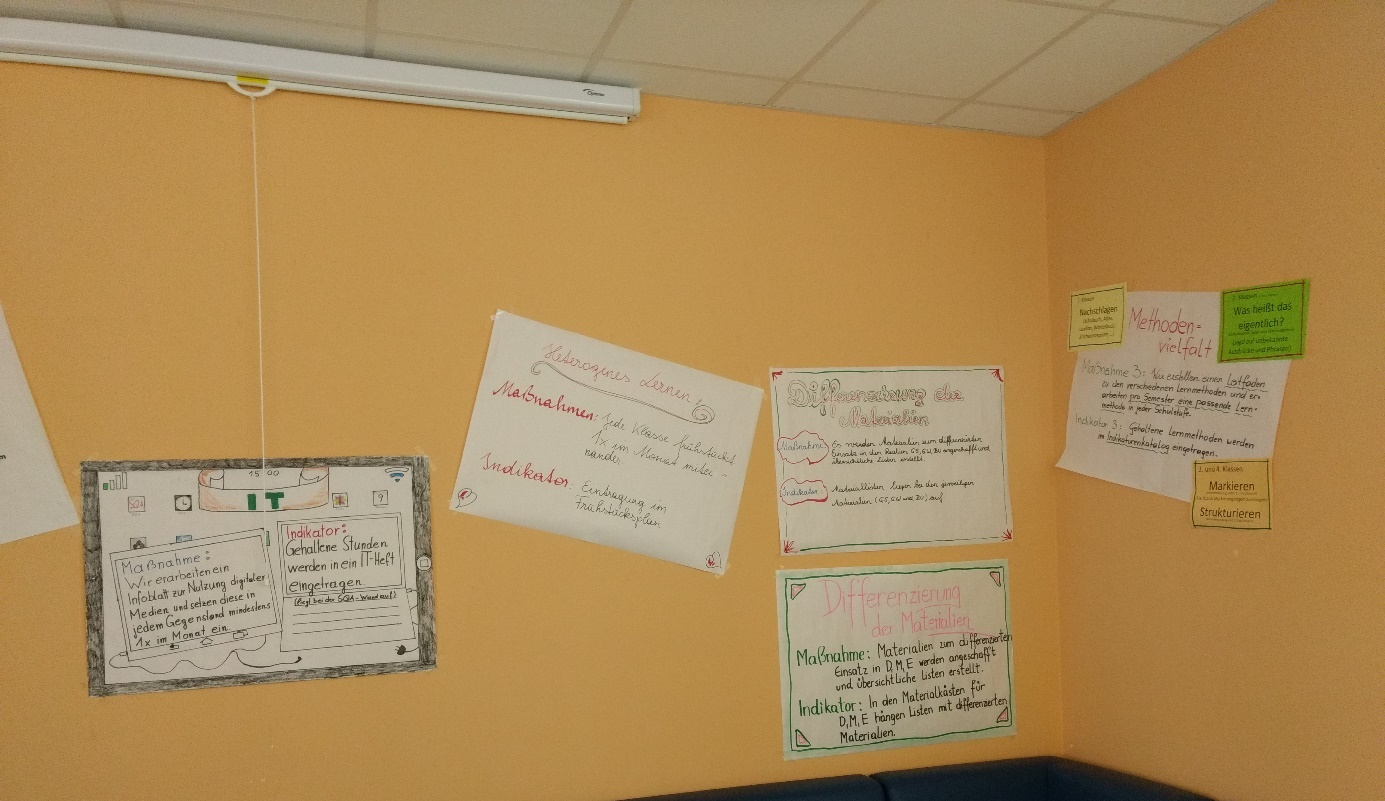 15:00
IT
Maßnahme:
Wir erarbeiten ein
Infoblatt zur Nutzung digitaler
Medien und setzen diese in
jedem Gegenstand mindestens
1x im Monat ein.
Indikator:
Gehaltene Stunden
werden in ein IT-Heft
eingetragen
(liegt bei der SQA-Wand auf)
Heterogenes Lernen
Maßnahmen: Jede Klasse frühstückt
1x im Monat mitei-
nander.
Indikator: Eintragung im
Frühstücksplan
Differenzierung der
Materialien
Maßnahme: Es werden Materialien zum differenzierten
Einsatz in den Realien, GS, GU, BU angeschafft und
übersichtliche Listen erstellt.
Indikator: Materiallisten liegen bei den jeweiligen
Materialien (GS, GU und BU) auf
Differenzierung
der Materialien
Maßnahme: Materialien zum differenzierten
Einsatz in D, M, E werden angeschafft
und übersichtliche Listen erstellt.
Indikator: In den Materialkästen für
D, M, E hängen Listen mit differenzierten
Materialien.
Nachschlagen
Was heißt das
eigentlich?
Methoden=
vielfalt
Maßnahme 3: Wir erstellen einen Leitfaden
zu den verschiedenen Lernmethoden und er-
arbeiten pro Semester eine passende Lern-
methode in jeder Schulstufe.
Indikator 3: Gehaltene Lernmethoden werden
im Indikatorenkatalog eingetragen.
3. und 4. Klassen
Markieren
Strukturieren